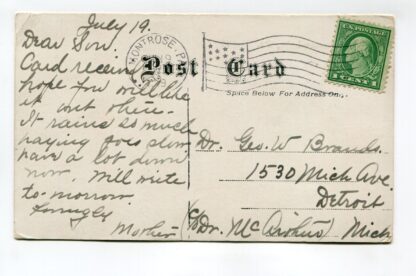 July 19.
Dear Son.
Card received
hope you will like
it out there.
It rains so much
haying goes slow
have a lot down
now. Will write
to-morrow.
Lovingly
Mother
MONTROSE, PA.
Post Card
Space Below For Address Only.
U.S. POSTAGE
1 CENT 1
Dr. Geo. W. Brands
1530 Mich Ave.
Detroit
c/o Dr. McArthur Mich